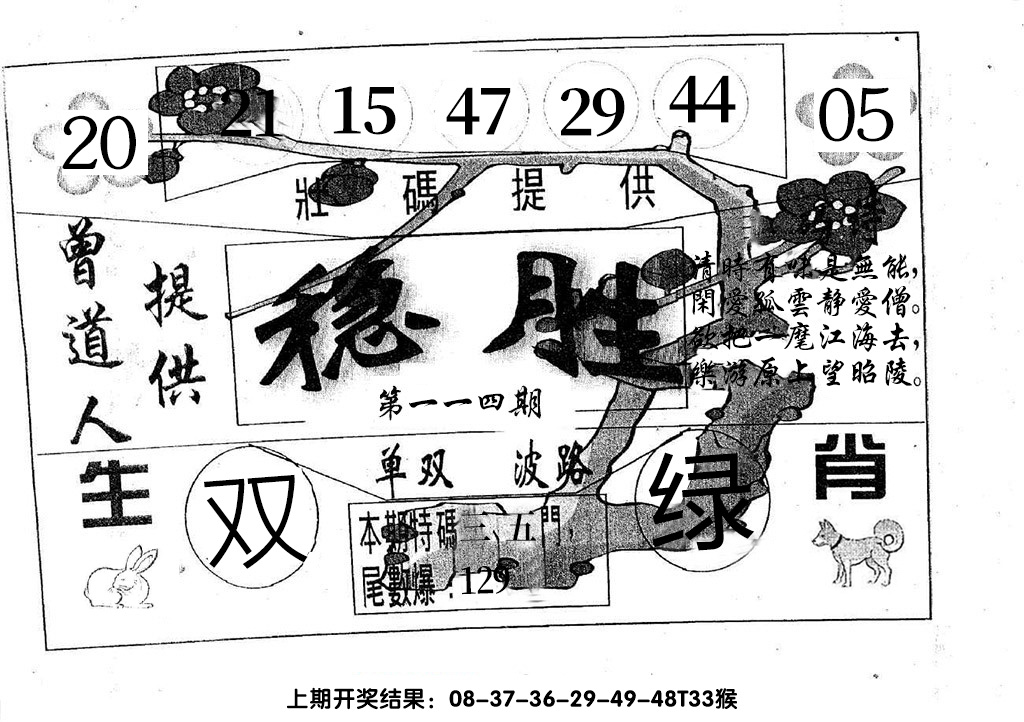 20 21 15 47 29 44 05
壯碼提供
特
曾道人
提供
稳胜
第一一四期
清時有味是無能，
閑愛孤雲静愛僧。
欲把一麾江海去，
樂游原上望昭陵。
生肖
单双 波路
双
绿
本期特碼三、五門，
尾數爆：129
上期开奖结果：08-37-36-29-49-48T33猴